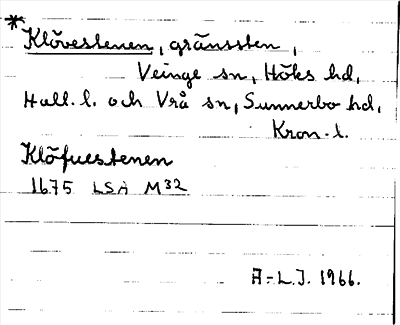 *Klövestenen, gränssten,
Veinge sn, Höks hd,
Hall. l. och Vrå sn, Sunnerbo hd,
Kron. l.
Klöfuestenen
1675 LSA M32
A-L.J. 1966.